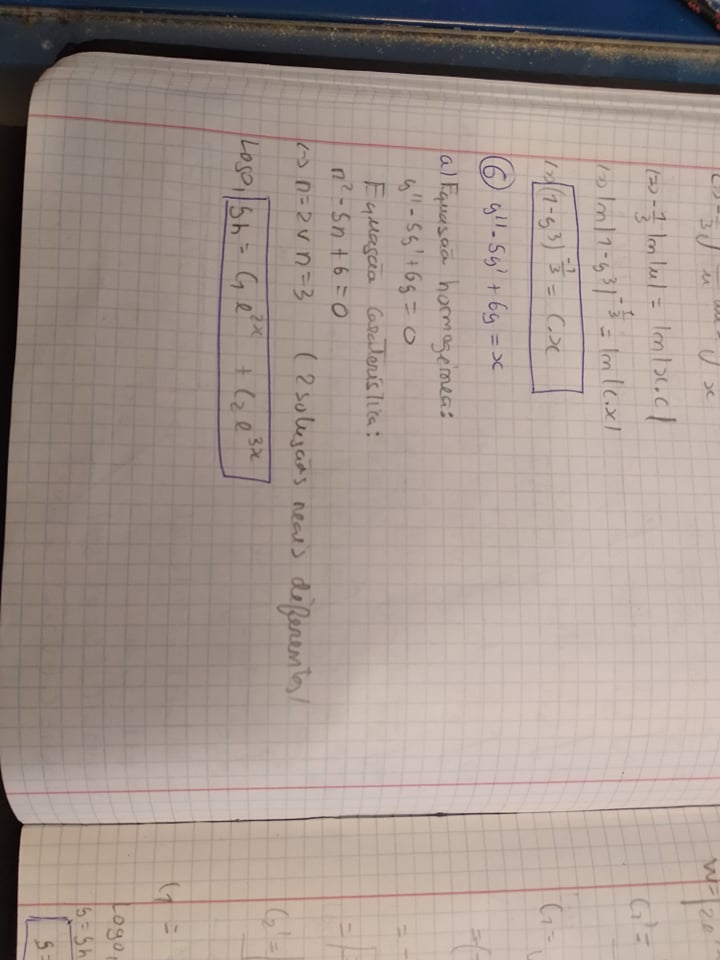 ⇔ -1/3 ln|u| = ln|x.c|
⇔ ln|1-y³|^(-1/3) = ln|c.x|
⇔ (1-y³)^(-1/3) = C.x
⑥ y'' - 5y' + 6y = x
a) Equasão homogénea:
y'' - 5y' + 6y = 0
Equasão Caraterística:
r² - 5r + 6 = 0
⇔ r=2 v r=3 (2 solusões reais diferentes)
Logo, yh = C₁ e^(2x) + C₂ e^(3x)
C₁' =
C₁ =
C₂' =
C₁ =
Logo,
y = yh
y =